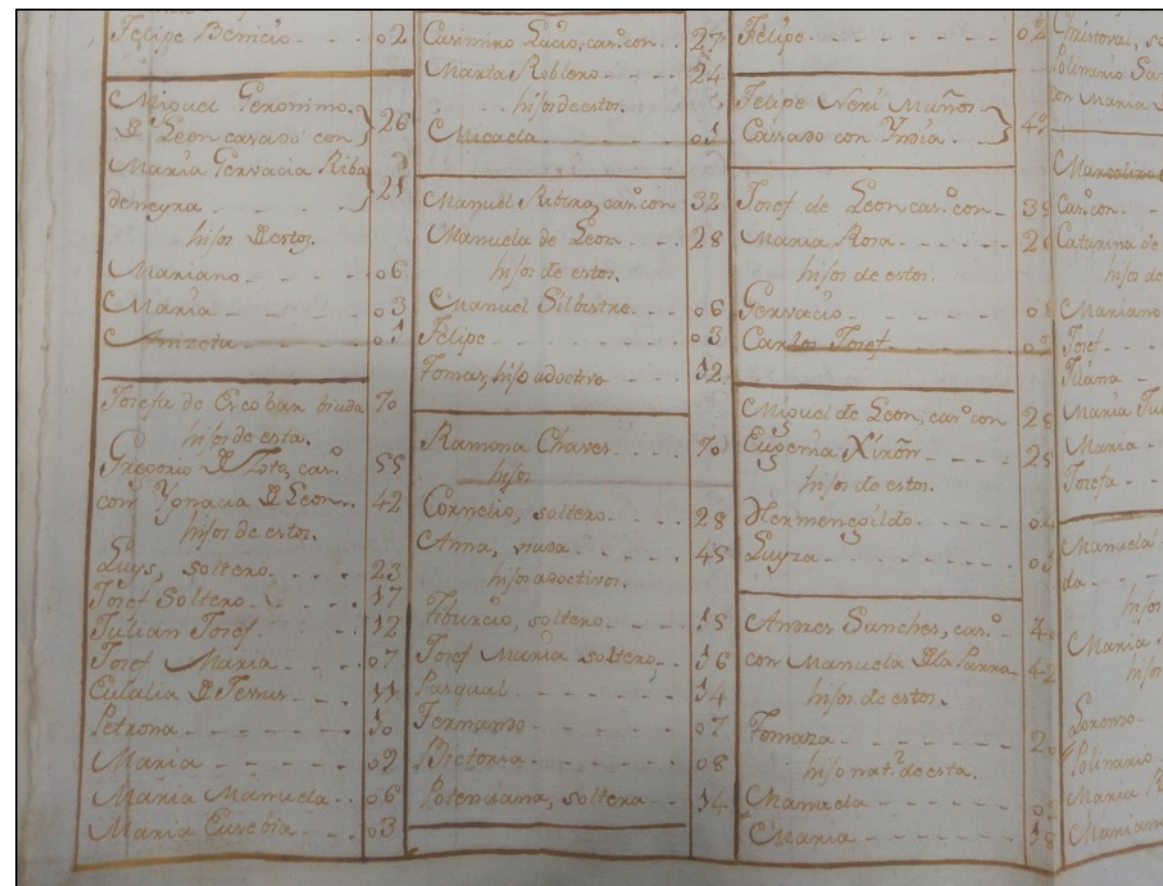 Felipe Benicio - - - 02
Miguel Geronimo
de Leon casado con } 26
Maria Gervacia Riba
deneyra - - - } 21
hijos de estos.
Mariano - - - - 06
Maria - - - - - 03
Anizeta - - - - 01
Josefa de Escobar biuda 70
hijos de esta.
Gregorio de Zota, cas.º 55
con Ygnacia de Leon.. 42
hijos de estos.
Luys, soltero. - - - 23
Josef Soltero - - - 17
Julian Josef - - - 12
Josef Maria - - - 07
Eulalia de Jesus - - - 11
Petrona - - - - - 10
Maria - - - - - 09
Maria Manuela - - 06
Maria Eusebia - - - 03
Casimiro Lucio, cas.º con - - 27
Marta Roblero - - - - 24
hijos de estos.
Micaela - - - - - 01
Manuel Ribera, cas.º con 32
Manuela de Leon - - - 28
hijos de estos.
Manuel Silbestre - - - 06
Felipe - - - - - 03
Tomas, hijo adoctivo - - - 12
Ramona Chaves - - - 70
hijos
Cornelio, soltero - - - - 28
Anna, viuda - - - - 45
hijos adoctivos.
Tiburcio, soltero - - - - 15
Josef Maria soltero - - 16
Pasqual - - - - - 14
Fernando - - - - 07
Bictoria - - - - - 08
Potenciana, soltera - - 14
Felipe - - - - - 02
Felipe Neri Muños }
Cassado con Yndia - - }
Josef de Leon cas. con -
Maria Rosa - - - - -
hijos de estos.
Gervacio - - - - -
Carlos Josef - - - -
Miguel de Leon, cas.º con
Eugenia Xirón - - - - 25
hijos de estos.
Hermengildo - - - - -
Luyza - - - - - -
Andres Sanches, cas.º -
con Manuela de la Parra - 42
hijos de estos.
Tomaza - - - - - -
hijo nat.º de esta.
Manuela - - - - - -
Maria - - - - - - 18
Christoval,
con Maria
Cas.º con - -
Catarina de
hijos de
Mariano
Josef - -
Juana -
Maria
Maria -
Josefa - -
Manuela
da - - -
hijos
Maria
hijos
Lorenzo -
Polinario
Maria
Mariano